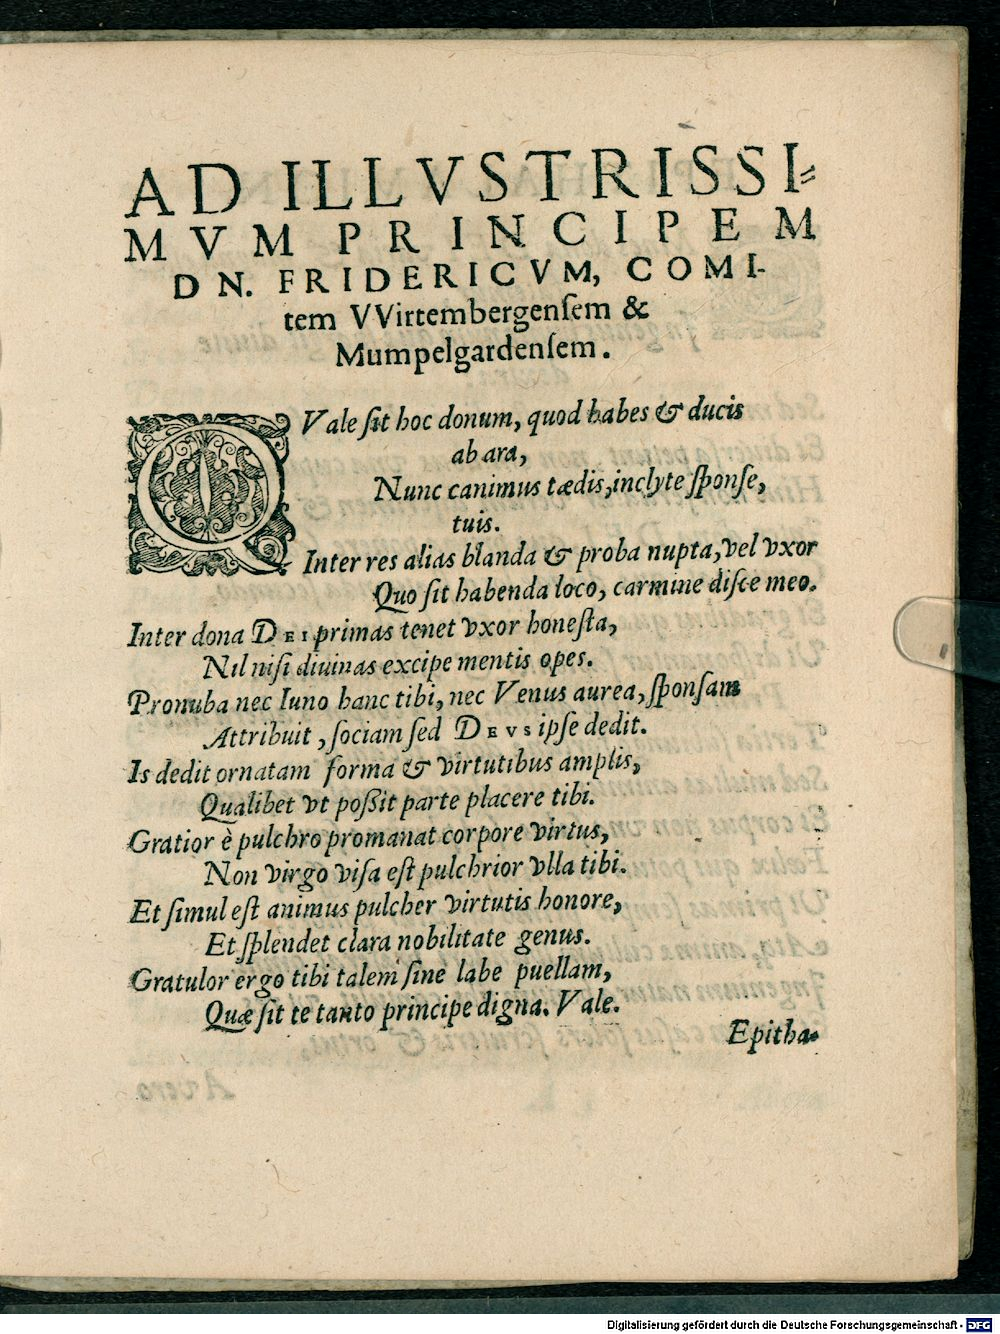 AD ILLVSTRISSI-
MVM PRINCIPEM
DN. FRIDERICVM, COMI-
tem VVirtembergenſem &
Mumpelgardenſem.
QVale ſit hoc donum, quod habes & ducis
ab ara,
Nunc canimus tædis, inclyte ſponſe,
tuis.
Inter res alias blanda & proba nupta, vel vxor
Quo ſit habenda loco, carmine diſce meo.
Inter dona DEI primas tenet vxor honeſta,
Nil niſi diuinas excipe mentis opes.
Pronuba nec Iuno hanc tibi, nec Venus aurea, ſponſam
Attribuit, ſociam ſed DEVS ipſe dedit.
Is dedit ornatam forma & virtutibus amplis,
Qualibet vt poßit parte placere tibi.
Gratior è pulchro promanat corpore virtus,
Non virgo viſa eſt pulchrior vlla tibi.
Et ſimul eſt animus pulcher virtutis honore,
Et ſplendet clara nobilitate genus.
Gratulor ergo tibi talem ſine labe puellam,
Quæ ſit te tanto principe digna. Vale.
Epitha-
Digitalisierung gefördert durch die Deutsche Forschungsgemeinschaft - DFG